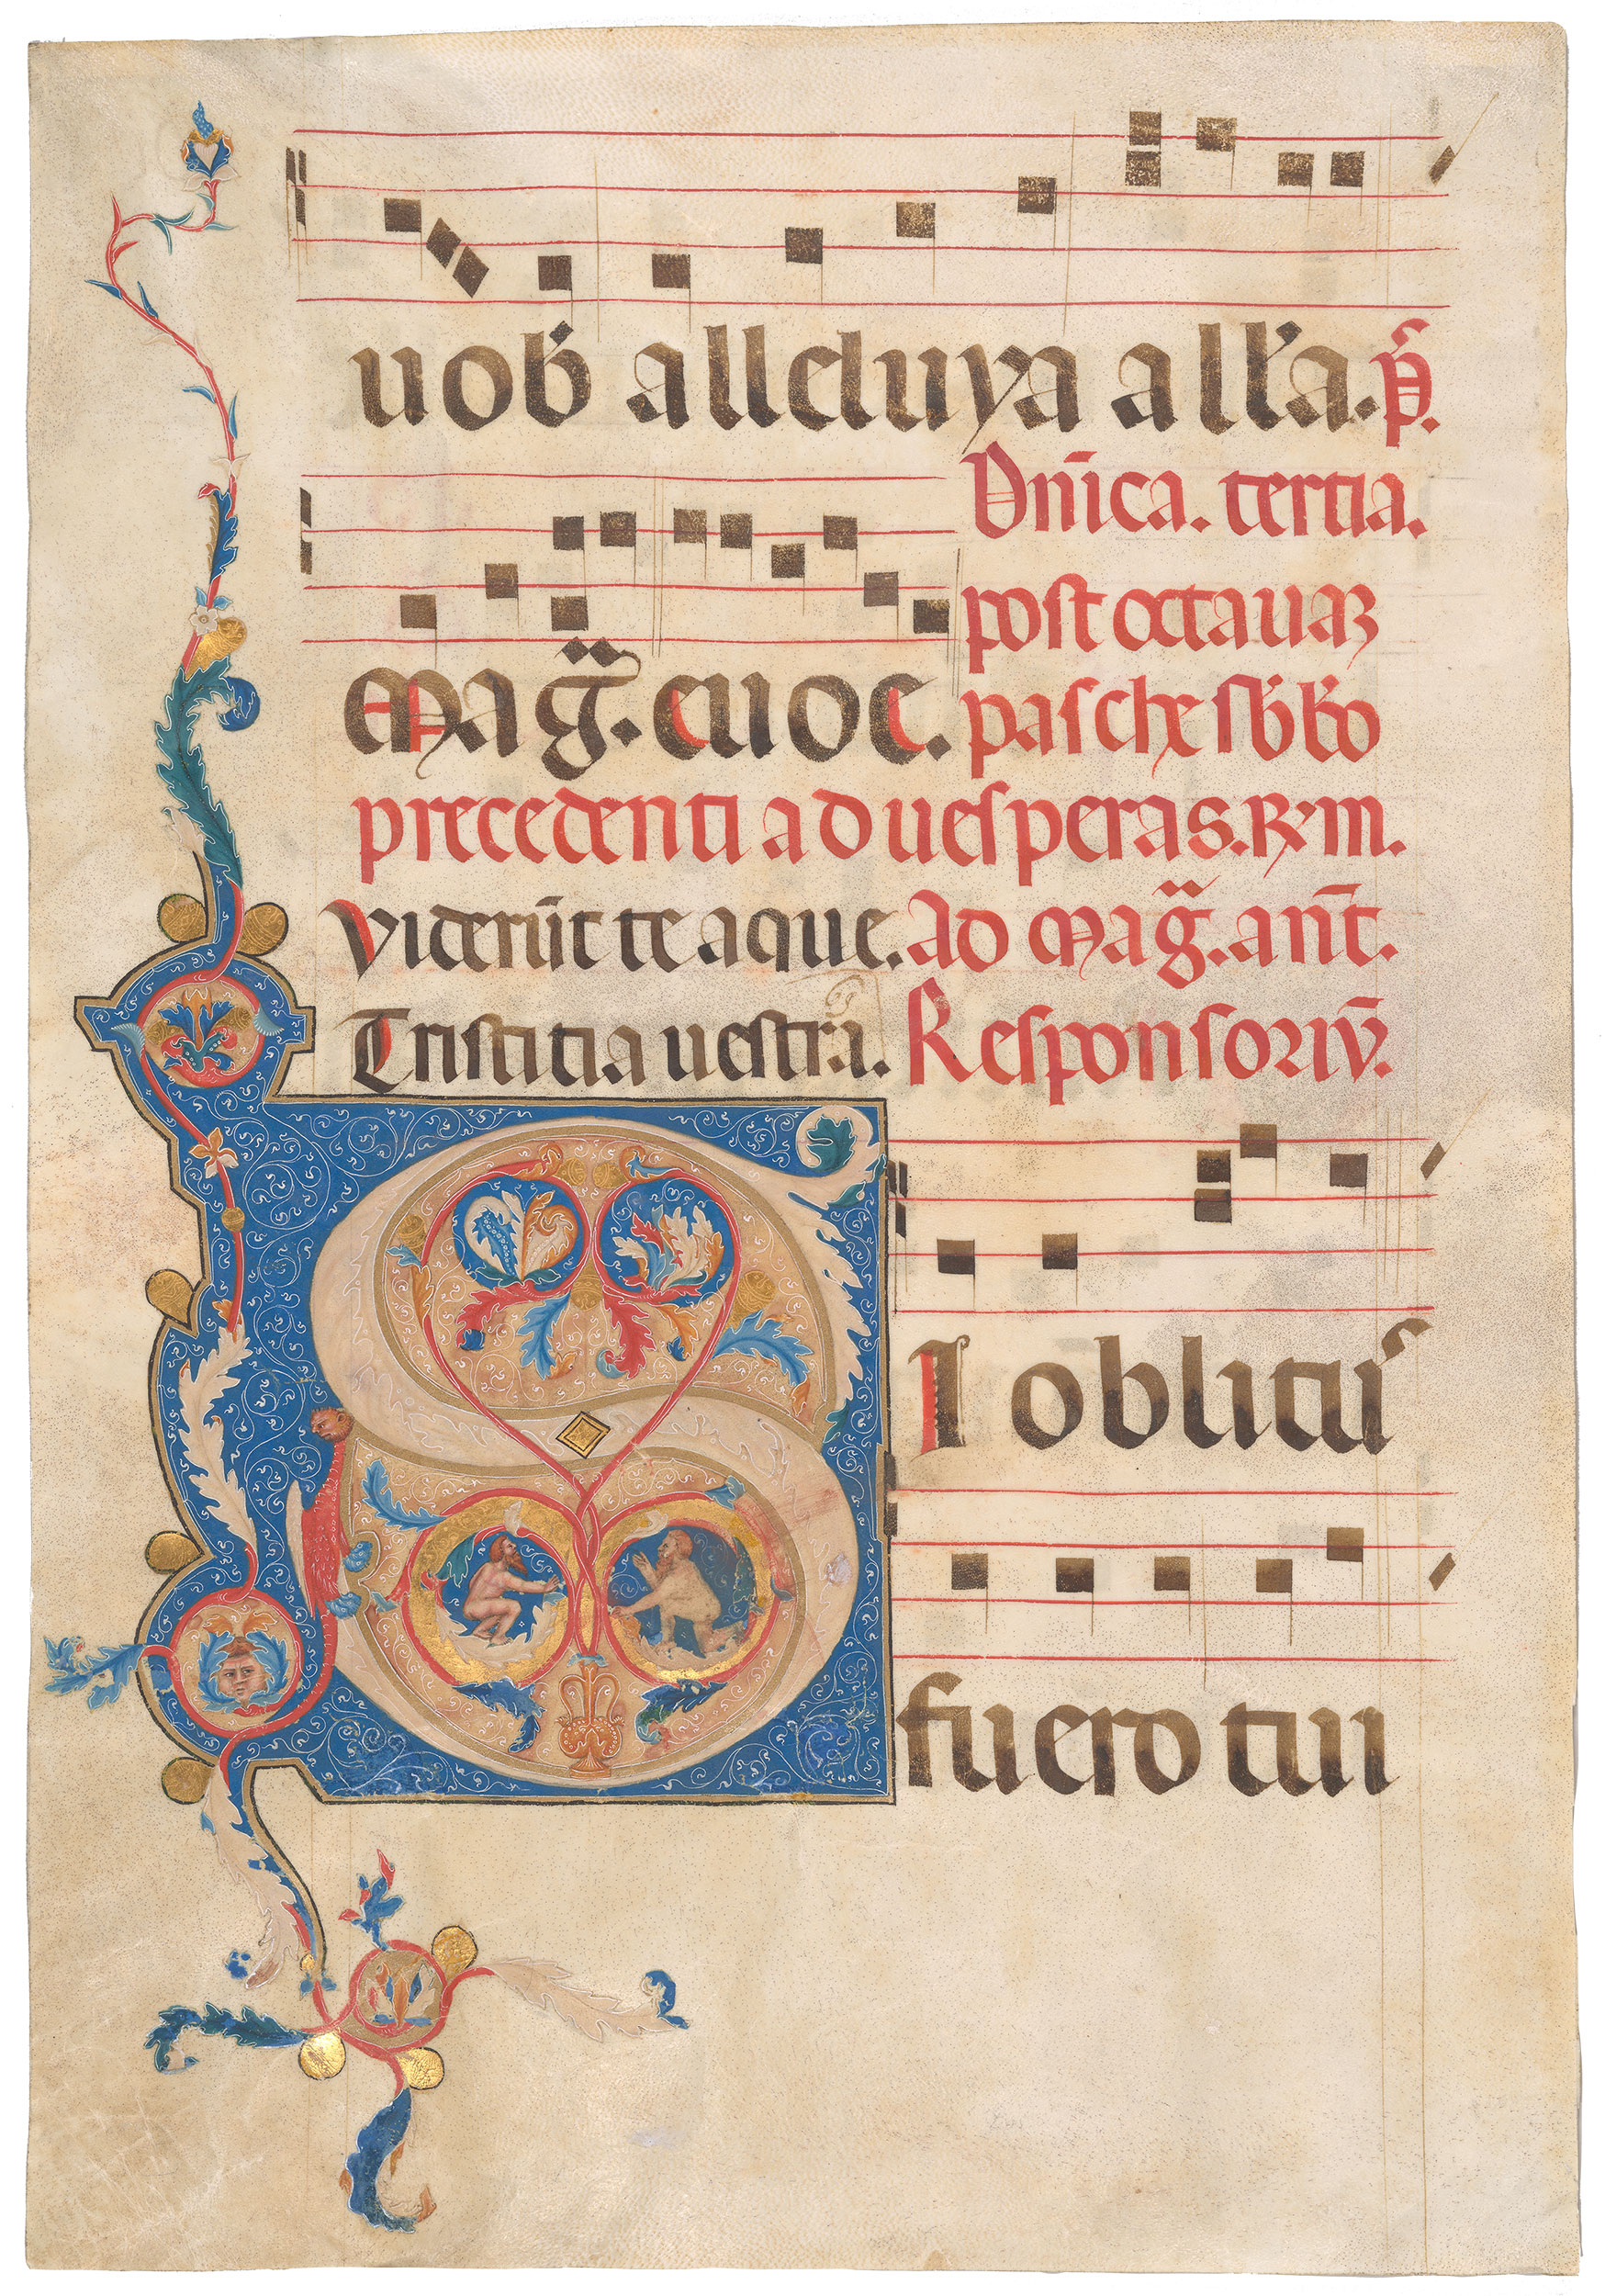 uob̅ alleluya all'a. p̅s.
Dn̅ica. tertia.
post octauaꝝ
Mag̅. euoe. pasche sb̅b'o
precedenti ad uesperas. ℞m.
Viderūt te aque. Ad mag̅. an̅t.
Tristitia uestra. Responsoriū.
SI oblitus
fuero tui